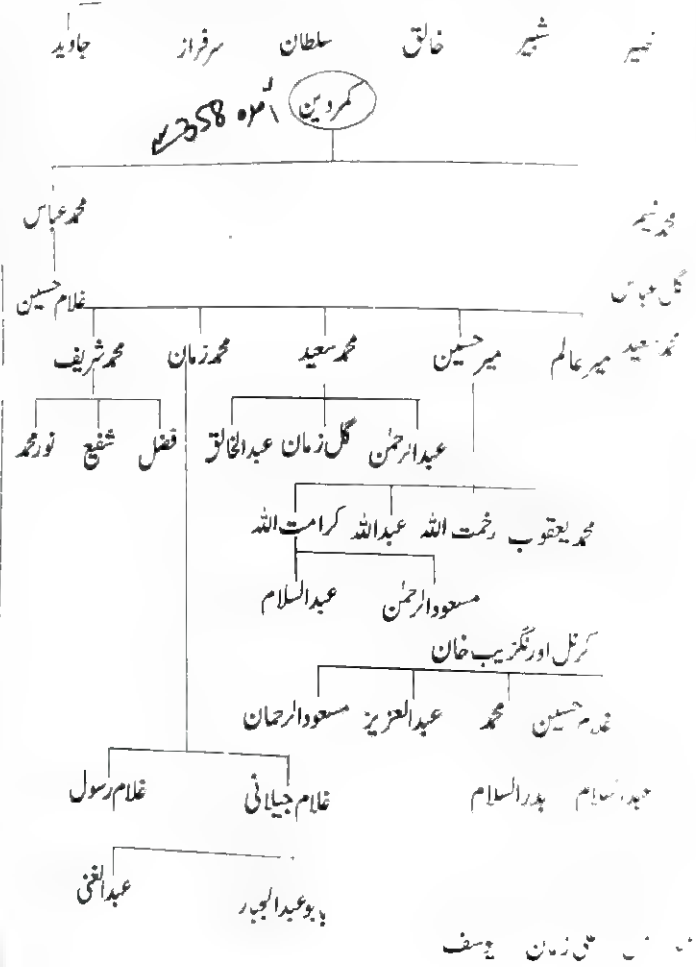 نصیر شبیر خالق سلطان سرفراز جاوید
کمر دین
358
محمد نسیم محمد عباس
گل عباس غلام حسین
محمد سعید میر عالم میر حسین محمد سعید محمد زمان محمد شریف
عبدالرحمٰن گل زمان عبدالخالق فضل شفیع نور محمد
محمد یعقوب رحمت اللہ عبداللہ کرامت اللہ
مسعودالرحمٰن عبدالسلام
کرنل اورنگزیب خان
غلام حسین محمد عبدالعزیز مسعودالرحمان
عبدالسلام بدرالسلام غلام جیلانی غلام رسول
بابو عبدالجبار عبدالغنی
زمان یوسف